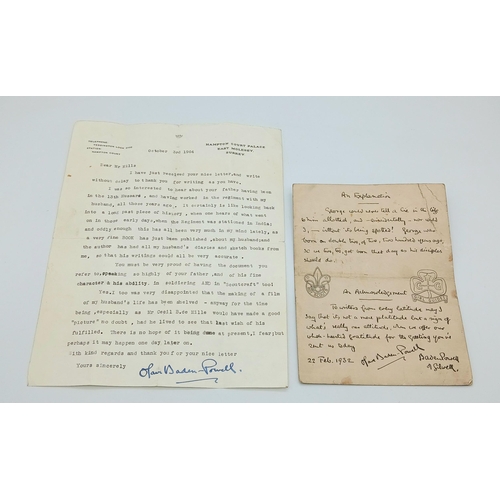 HAMPTON COURT PALACE
EAST MOLESEY
SURREY
October 2nd
Dear Mr Mills
I have just received your nice letter, and write
without delay to thank you for writing as you have.
I was so interested to hear about your father having been
in the 13th Hussars, and having worked in the regiment with my
husband, all those years ago. It certainly is like looking back
into a long past piece of history, when one hears of what went
on in those early days, when the Regiment was stationed in India;
and oddly enough this has all been very much in my mind lately, as
a very fine BOOK has just been published, about my husband; and
the author has had all my husband's diaries and sketch books from
me, so that his writings could all be very accurate.
You must be very proud of having the document you
refer to, speaking so highly of your father, and of his fine
character & his ability. In soldiering AND in "Scoutcraft" too!
Yes, I too was very disappointed that the making of a film
of my husband's life has been shelved - anyway for the time
being, especially as Mr Cecil B. de Mille would have made a good
"picture" no doubt, had he lived to see that last wish of his
fulfilled. There is no hope of it being done at present, I fear, but
perhaps it may happen one day later on.
With kind regards and thank you for your nice letter
Yours sincerely
Olave Baden-Powell
An Explanation
George could never tell a lie
George was
born on double two, of two, two hundred years ago,
So we two, too, got our this day as his disciples
should do.
An Acknowledgment
To writers from every latitude may I
Say that it's not a mere platitude but a sign of
what's really our attitude, when we offer our
whole-hearted gratitude for the greeting you've
sent us today
22 Feb. 1932 Olave Baden Powell Baden Powell
of Gilwell